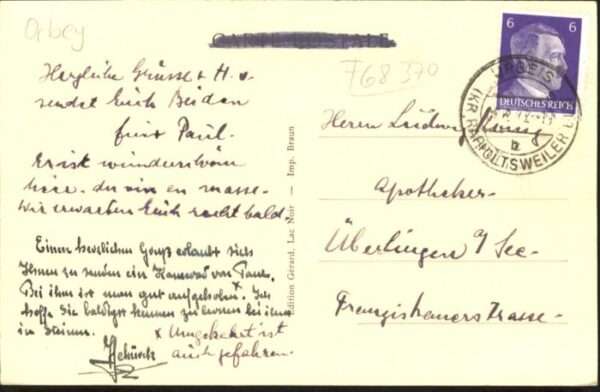 Orbey
CARTE POSTALE
768 370
6 6
DEUTSCHES REICH
URBEIS
(KR. RAPPOLTSWEILER
b
Herzliche Grüsse & H.
sendet Euch Beiden
Paul.
Er ist wunderschön
hier
Wir erwarten Euch recht bald.
Einen herzlichen Gruß erlaubt sich
Ihnen zu senden ein Kamerad von Paul.
Bei ihm ist man gut aufgehoben x Ich
hoffe Sie baldigst kennen zu lernen bei ihm
in
x Umgekehrt ist
auch gefahren.
Edition Gérard, Lac Noir — Imp. Braun
Herrn Ludwig
Apotheker-
Überlingen a/See-
Franziskanerstrasse-